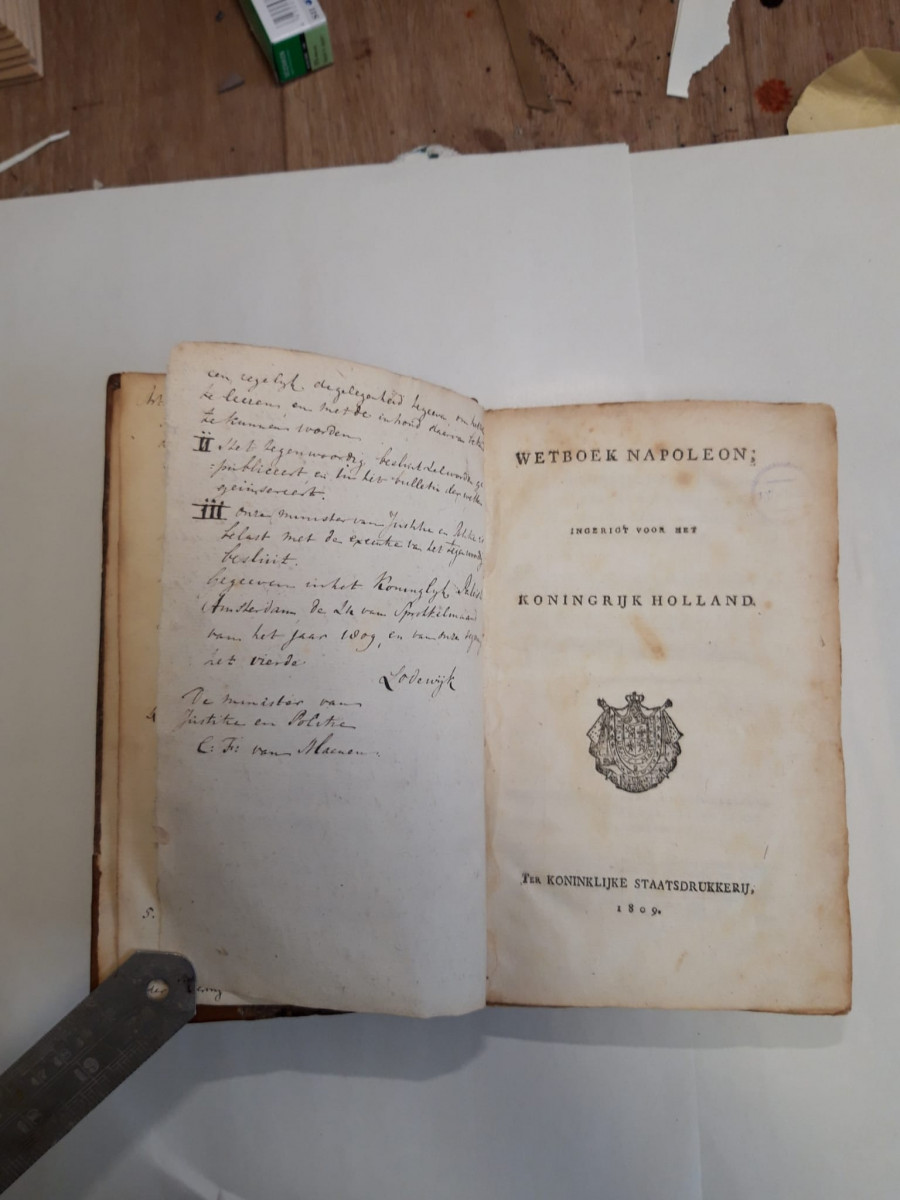 een, regelijk de gelegenheid te geeven, om het
te leeren en met de inhoud daarvan
te kunnen worden
II Het tegenwoordig besluit zal worden ge
=publiceert en in het bulletin der wetten
geinsereert.
III onze minister van Justitie en Politie is
belast met de executie van het tegenwoordig
besluit.
Gegeeven in het Koninglijk Paleis
Amsterdam de 24 van Sprokkelmaand
van het jaar 1809, en van onze regeering
het vierde
Lodewijk
De minister van
Justitie en Politie
C: F: van Maanen
5.
WETBOEK NAPOLEON;
INGERIGT VOOR HET
KONINGRIJK HOLLAND.
TER KONINKLIJKE STAATSDRUKKERIJ,
1809.